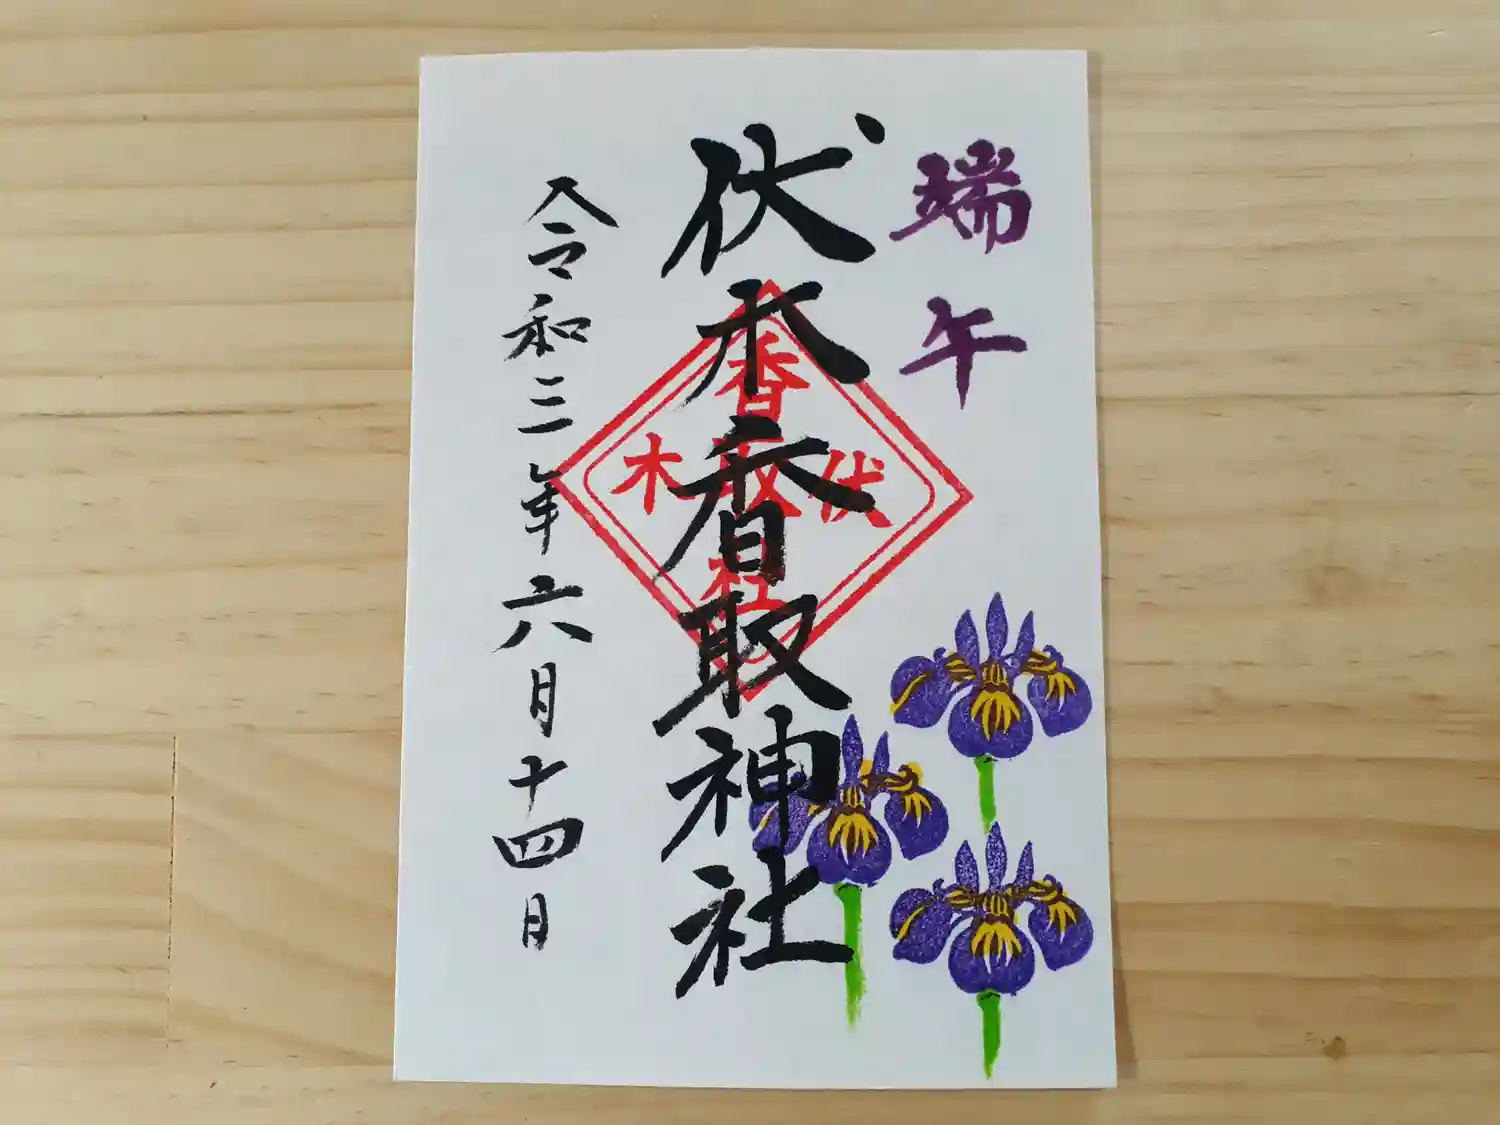 端午
伏木香取神社
令和三年六月十四日
香
伏
取
木
社